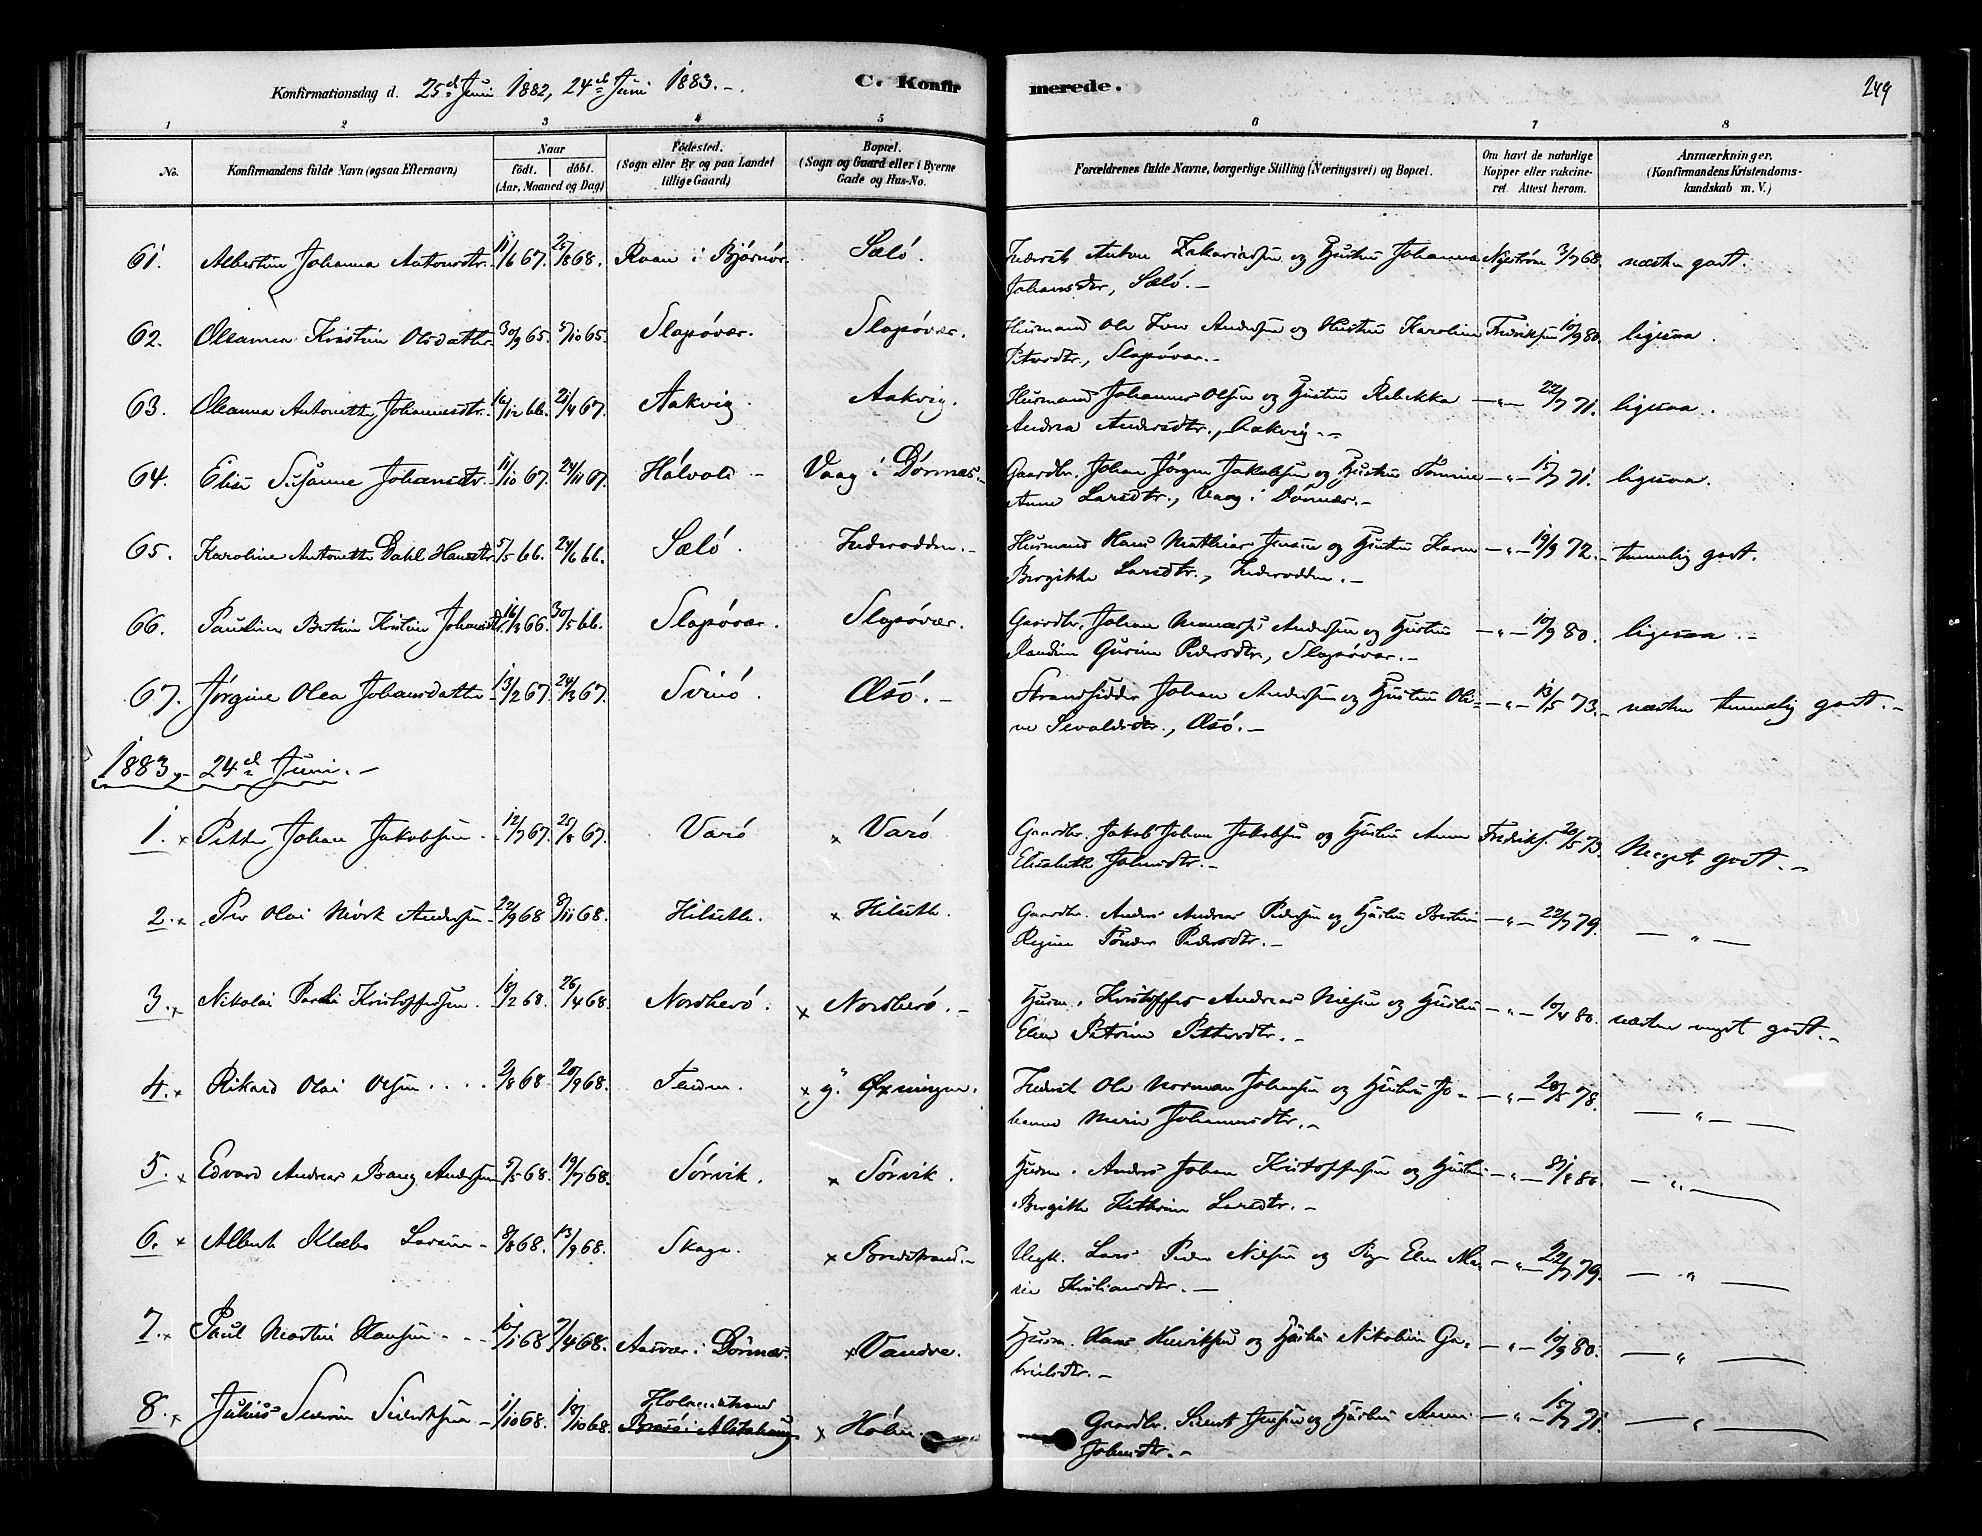 Konfirmationsdag d. 25de Juni 1882, 24de Juni 1883.-
C. Konfirmerede. 249
1 2 3 4 5 6 7 8
No.
Konfirmandens fulde Navn (ogsaa Efternavn)
Naar
födt. döbt.
(Aar, Maaned og Dag)
Födested.
(Sogn eller By og paa Landet
tillige Gaard)
Bopæl.
(Sogn og Gaard eller i Byerne
Gade og Hus-No.
Forældrenes fulde Navne, borgerlige Stilling (Næringsvei) og Bopæl.
Om havt de naturlige
Kopper eller vakcine-
ret. Attest herom.
Anmærkninger.
(Konfirmandens Kristendoms-
kundskab m. V.)
61. Albertine Johanna Antonsdtr. 11/6 67. 25/8 68. Roan i Bjørnør. Sælö. Inderst Anton Zakariassen og Hustru Johanna 3/7 68. næsten godt.
Johansdtr., Sælö.-
62. Olsanna Kristine Olsdatter 30/9 65. 5/10 65. Slapövær. Slapövær. Husmand Ole Iver Andersen og Hustru Karoline Fredriksen 10/9 80. ligesaa.
Petersdtr., Slapövær.-
63. Oleanna Antonette Johannesdtr. 16/12 66. 21/4 67. Aakvig. Aakvig. Husmand Johannes Olsen og Hustru Rebekka -"- 22/7 71. ligesaa.
Andrea Andersdtr., Aakvig.-
64. Elise Susanne Johansdtr. 11/10 67. 24/11 67. Vaag i Dönnæs.- Gaardbr. Johan Jörgen Jakobsen og Hustru -"- 15/7 71. ligesaa.
Anne Larsdtr., Vaag i Dönnæs.-
65. Karoline Antonette Dahl Hansdtr. 5/5 66. 24/6 66. Sælö. Inderodden.- Husmand Hans Mathias Jensen og Hustru Karen -"- 19/9 72.- temmelig godt.
Birgitte Larsdtr., Inderodden.-
66. Pauline Bertine Kristine Johansdtr. 16/3 66. 30/5 66. Slapövær. Slapövær. Gaardbr. Johan Andersen og Hustru -"- 10/9 80. ligesaa.-
Gurine Pedersdtr., Slapövær.-
67. Jörgine Olea Johansdatter 13/2 67. 24/3 67. Svinö. Æsö.- Strandsidder Johan Andersen og Hustru Oli- -"- 13/5 73.- næsten temmelig godt.-
ne Sevaldsdtr., Æsö.-
1883,- 24de Juni.-
1. x Petter Johan Jakobsen - 12/7 67. 25/8 67. Varö x Varö Gaardbr. Jakob Johan Jakobsen og Hustru Anne Fredriks. 20/5 73. Meget godt.-
Elisabeth Johnsdtr.-
2. x Per Olai Mörk Andersen - 22/9 68 8/11 68. x Gaardbr. Anders Andreas Pedersen og Hustru Bertine -"- 22/7 79. -"-
Regine Tönder Pedersdtr.-
3. x Nikolai Kristoffersen. 18/2 68. 26/4 68. Nordherö. x Nordherö.- Husm. Kristoffer Andreas Nielsen og Hustru -"- 10/4 80. næsten meget godt.-
Elen Petrine Pettersdtr.-
4. x Rikard Olai Olsen .... 2/8 68. 20/9 68. x Öxningen. Inderst Ole Norman Johansen og Hustru Jo- -"- 20/5 78. -"-
hanna Marie Johannesdtr.-
5. x Edvard Andreas Bang Andersen 5/5 68. 19/7 68. Sörvik x Sörvik. Husm. Anders Johan Kristoffersen og Hustru -"- -"-
Birgitte Kathrine Larsdtr.-
6. x Albert Klæbo Larsen - 8/8 68. 13/9 68. Skaga. x Bredstrand.- Ungk. Lars Peder Nielsen og Pige Elen Ma- -"- 22/7 79. -"-
rie Kristiansdtr.-
7. x Paul Martin Hansen - - 10/1 68 7/4 68. Aasvær i Dönnæs. x Vandve. Husm. Hans Henriksen og Hustru Nikoline Ga- -"- 10/9 80. -"-
brielsdtr.-
8. x Julius Severin Sivertsen - 1/10 68. 18/10 68. Holmstrand x Gaardbr. Sivert Jensen og Hustru Anne -"- 15/7 71. -"-
i Alstahaug
Johnsdtr.-